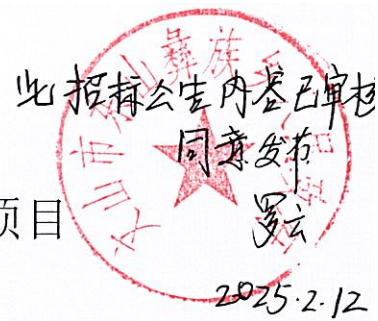 此招标公告内容已审核
同意发布
项目
罗云
2025.2.12
文山市 山彝族